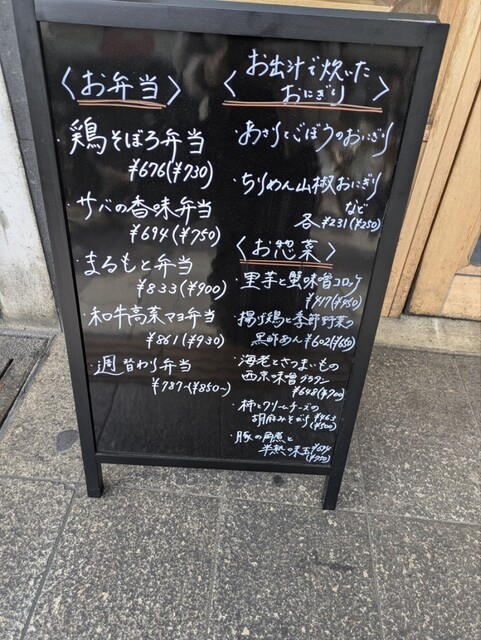 〈お弁当〉
・鶏そぼろ弁当
¥676(¥730)
・サバの香味弁当
¥694(¥750)
・まるもと弁当
¥833(¥900)
・和牛高菜マヨ弁当
¥861(¥930)
・週替わり弁当
¥787~(¥850~)
〈お出汁で炊いた
おにぎり〉
・あさりとごぼうのおにぎり
・ちりめん山椒おにぎり
など
各¥231(¥250)
〈お惣菜〉
・里芋と蟹味噌コロッケ
¥417(¥450)
・揚げ鶏と季節野菜の
黒酢あん ¥602(¥650)
・海老とさつまいもの
西京味噌グラタン
¥648(¥700)
・柿とクリームチーズの
胡麻みそがけ ¥463
(¥500)
・豚の角煮と
半熟味玉 ¥694
(¥750)